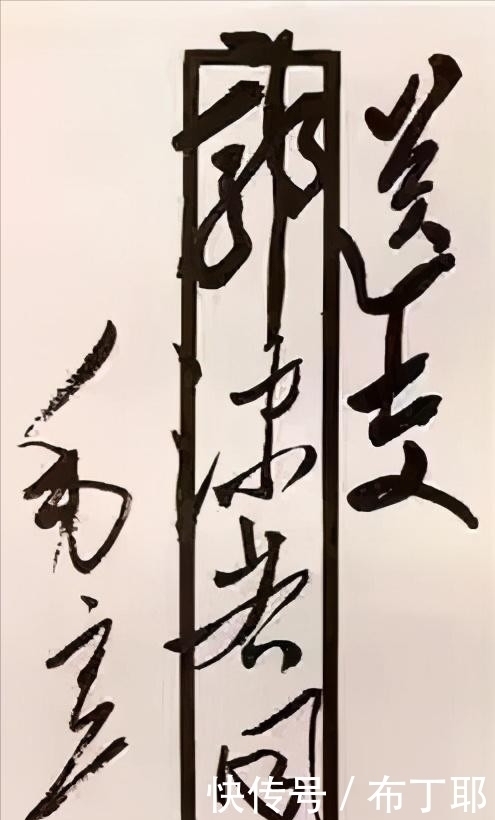 送交
郭沫若同
毛
快传号 / 布丁耶